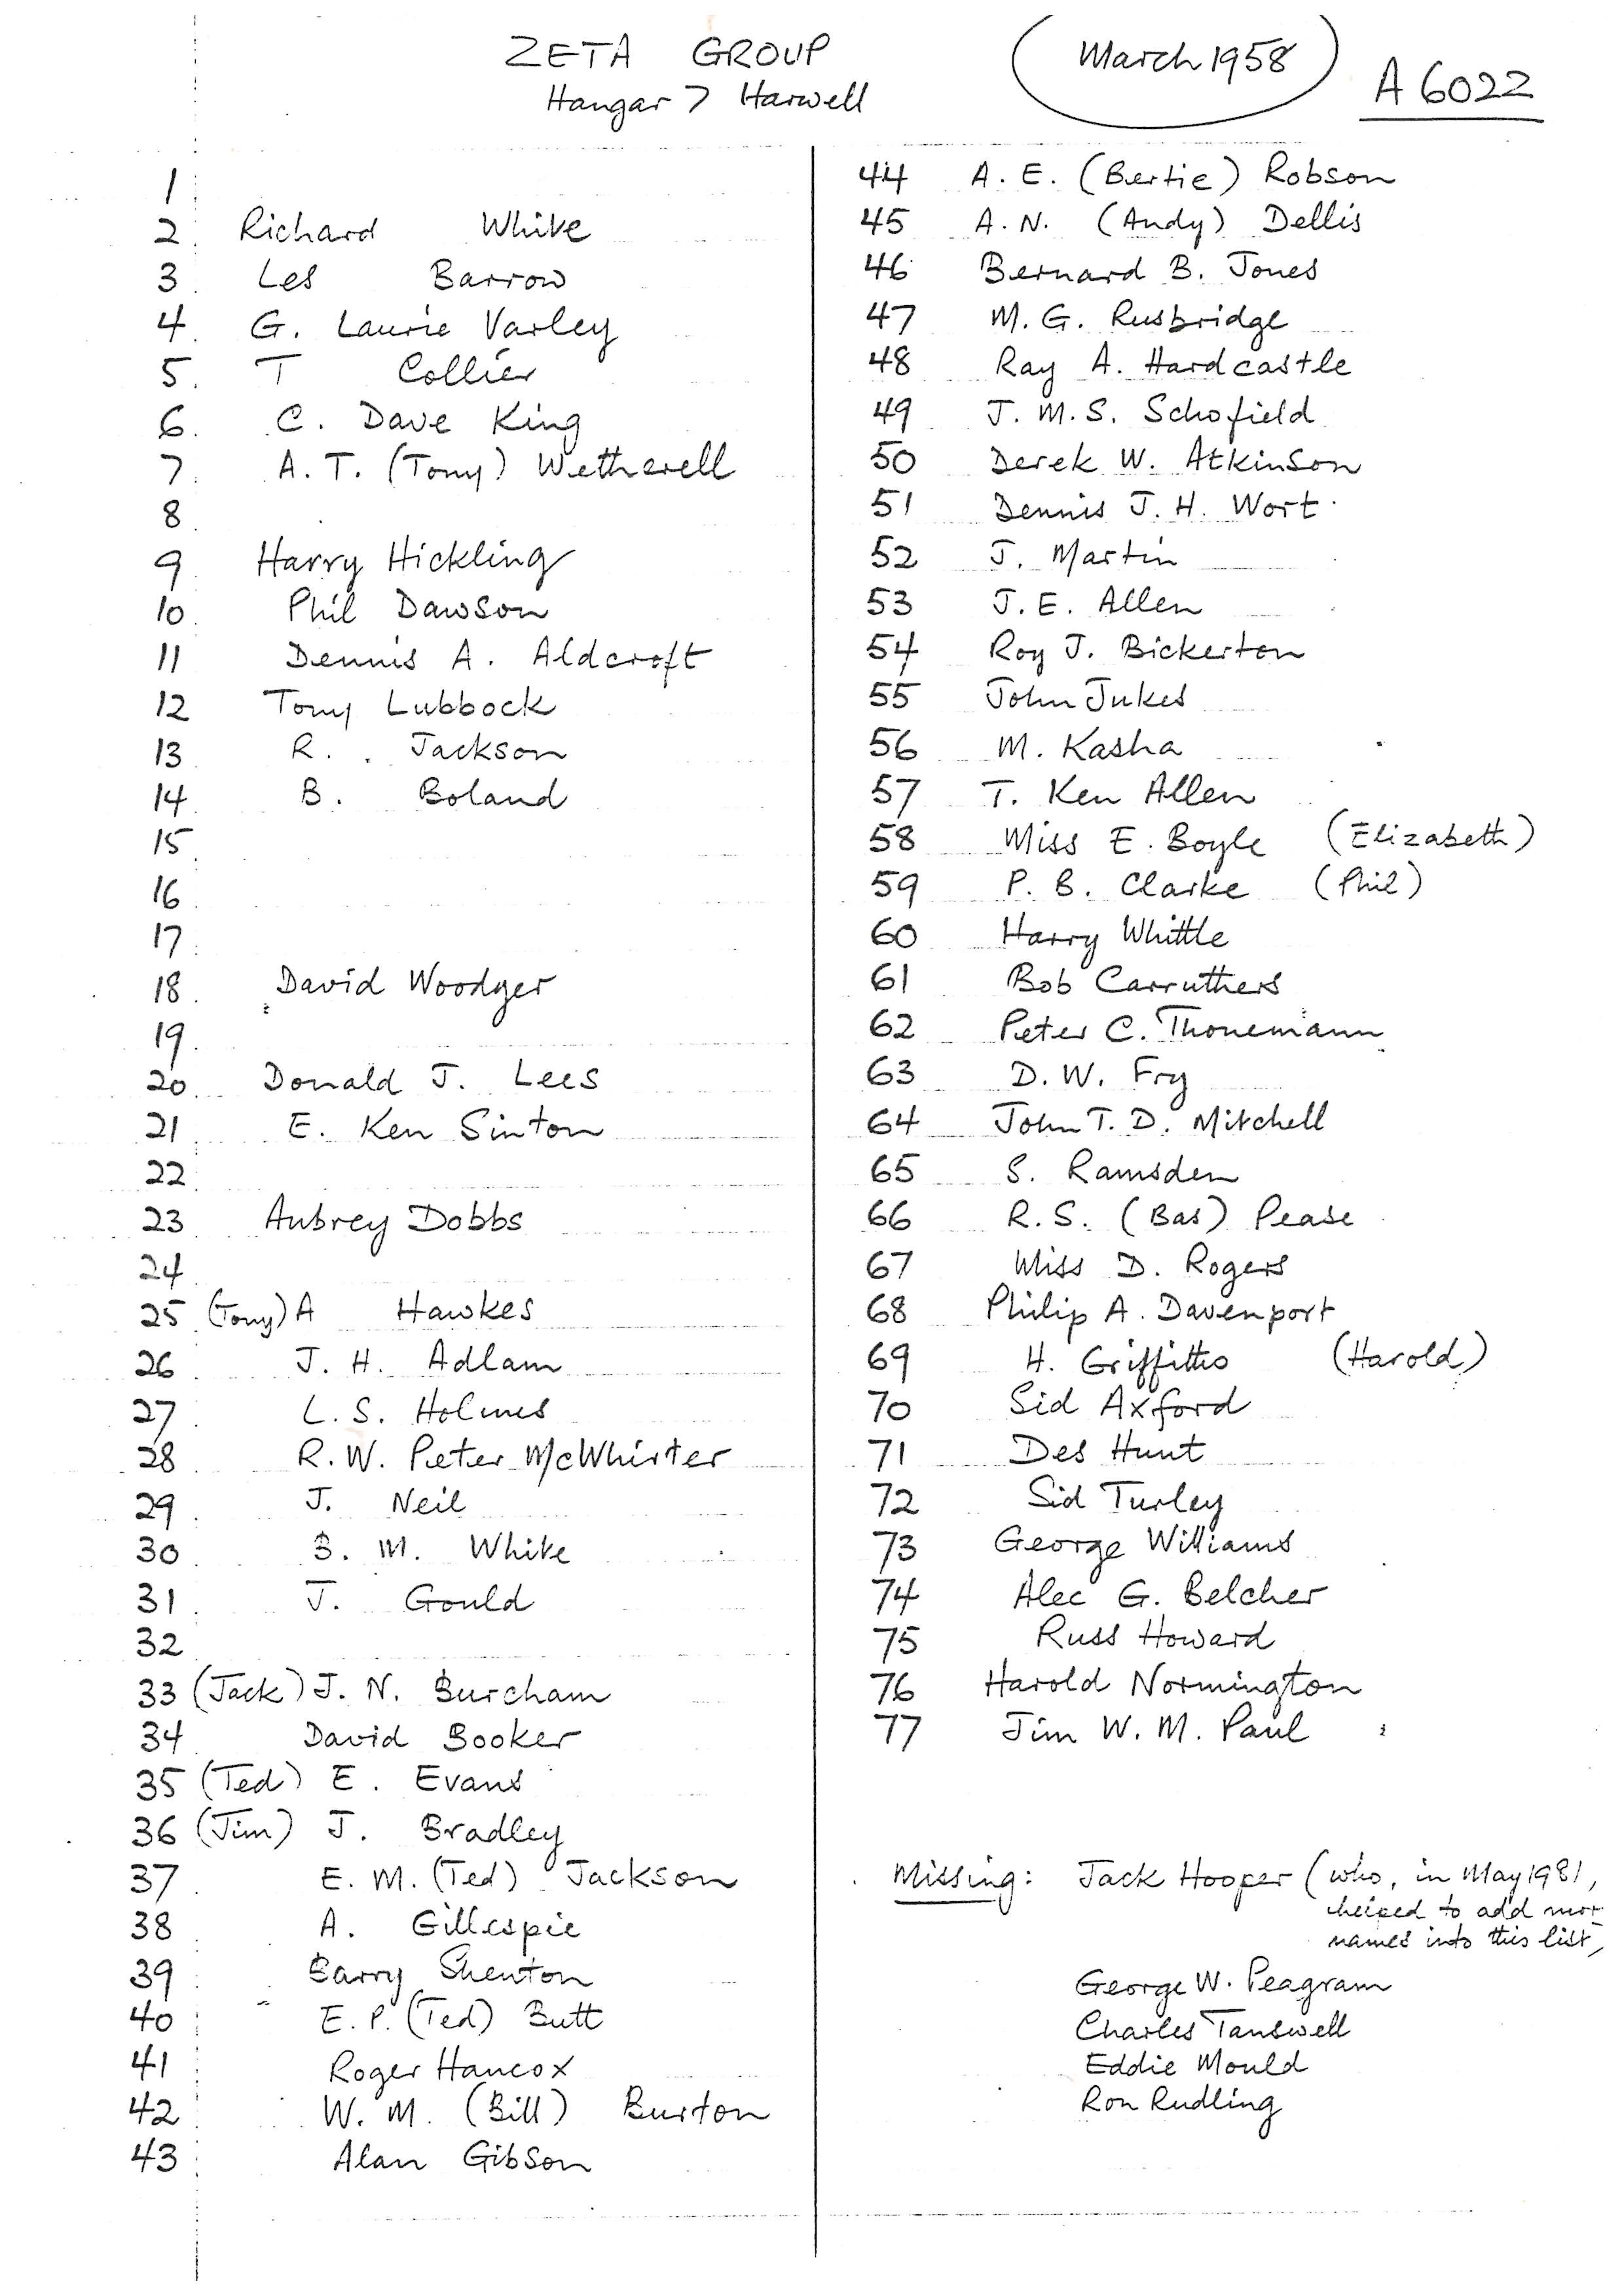 ZETA GROUP
Hangar 7 Harwell
(March 1958)
A 6022
1
2 Richard White
3 Les Barrow
4 G. Laurie Varley
5. T Collier
6. C. Dave King
7 A. T. (Tony) Wetherell
8
9 Harry Hickling
10 Phil Dawson
11 Dennis A. Aldcroft
12 Tony Lubbock
13 R. . Jackson
14 B. Boland
15
16
17
18 David Woodger
19
20 Donald J. Lees
21 E. Ken Sinton
22
23 Aubrey Dobbs
24
25 (Tony) A Hawkes
26 J. H. Adlam
27 L. S. Holmes
28 R. W. Peter McWhirter
29 J. Neil
30 B. M. White
31 J. Gould
32
33 (Jack) J. N. Burcham
34 David Booker
35 (Ted) E. Evans
36 (Jim) J. Bradley
37 E. M. (Ted) Jackson
38 A. Gillespie
39 Barry Shenton
40 E. P. (Ted) Butt
41 Roger Hancox
42 W. M. (Bill) Burton
43 Alan Gibson
44 A. E. (Bertie) Robson
45 A. N. (Andy) Dellis
46 Bernard B. Jones
47 M. G. Rusbridge
48 Ray A. Hardcastle
49 J. M. S. Schofield
50 Derek W. Atkinson
51 Dennis J. H. Wort
52 J. Martin
53 J. E. Allen
54 Roy J. Bickerton
55 John Jukes
56 M. Kasha
57 T. Ken Allen
58 Miss E. Boyle (Elizabeth)
59 P. B. Clarke (Phil)
60 Harry Whittle
61 Bob Carruthers
62 Peter C. Thonemann
63 D. W. Fry
64 John T. D. Mitchell
65 S. Ramsden
66 R. S. (Bas) Pease
67 Miss D. Rogers
68 Philip A. Davenport
69 H. Griffiths (Harold)
70 Sid Axford
71 Des Hunt
72 Sid Turley
73 George Williams
74 Alec G. Belcher
75 Russ Howard
76 Harold Normington
77 Jim W. M. Paul
Missing: Jack Hooper (who, in May 1981,
helped to add mor
names into this list,
George W. Peagram
Charles Tanswell
Eddie Mould
Ron Rudling